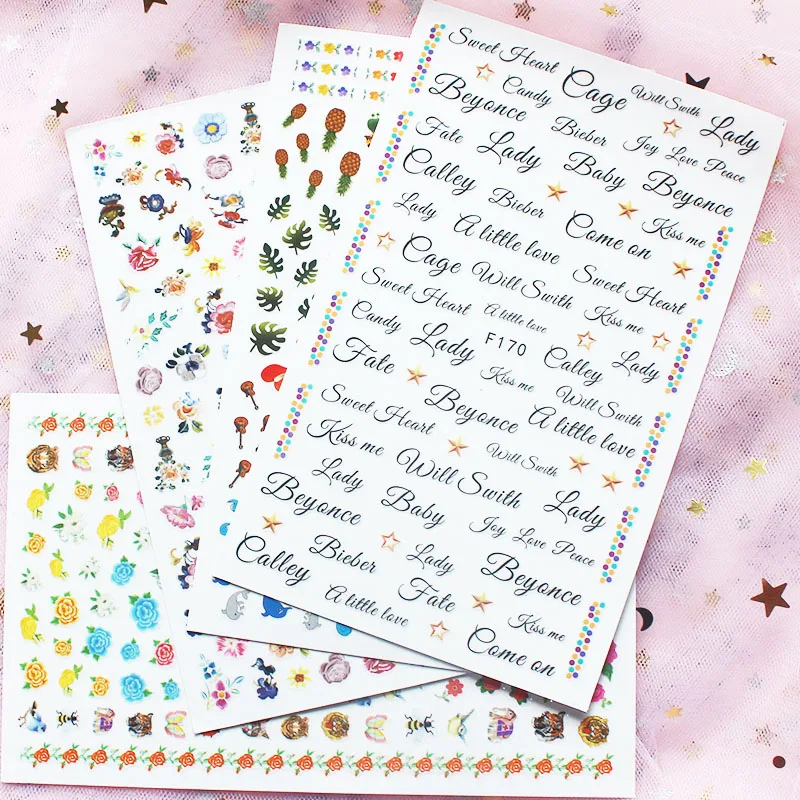 Sweet Heart Cage Will Swith Lady
Candy
Beyonce Bieber Joy Love Peace
Fate Lady Baby Beyonce
Calley Bieber Come on Kiss me
Lady A little love
Cage Will Swith Sweet Heart
Sweet Heart A little love Kiss me
Candy Lady F170 Calley Lady
Fate Kiss me Will Swith
Sweet Heart Beyonce A little love
Kiss me Will Swith Will Swith Lady
Lady Baby Joy Love Peace
Beyonce
Calley Bieber Lady Beyonce
A little love Fate Kiss me
Come on